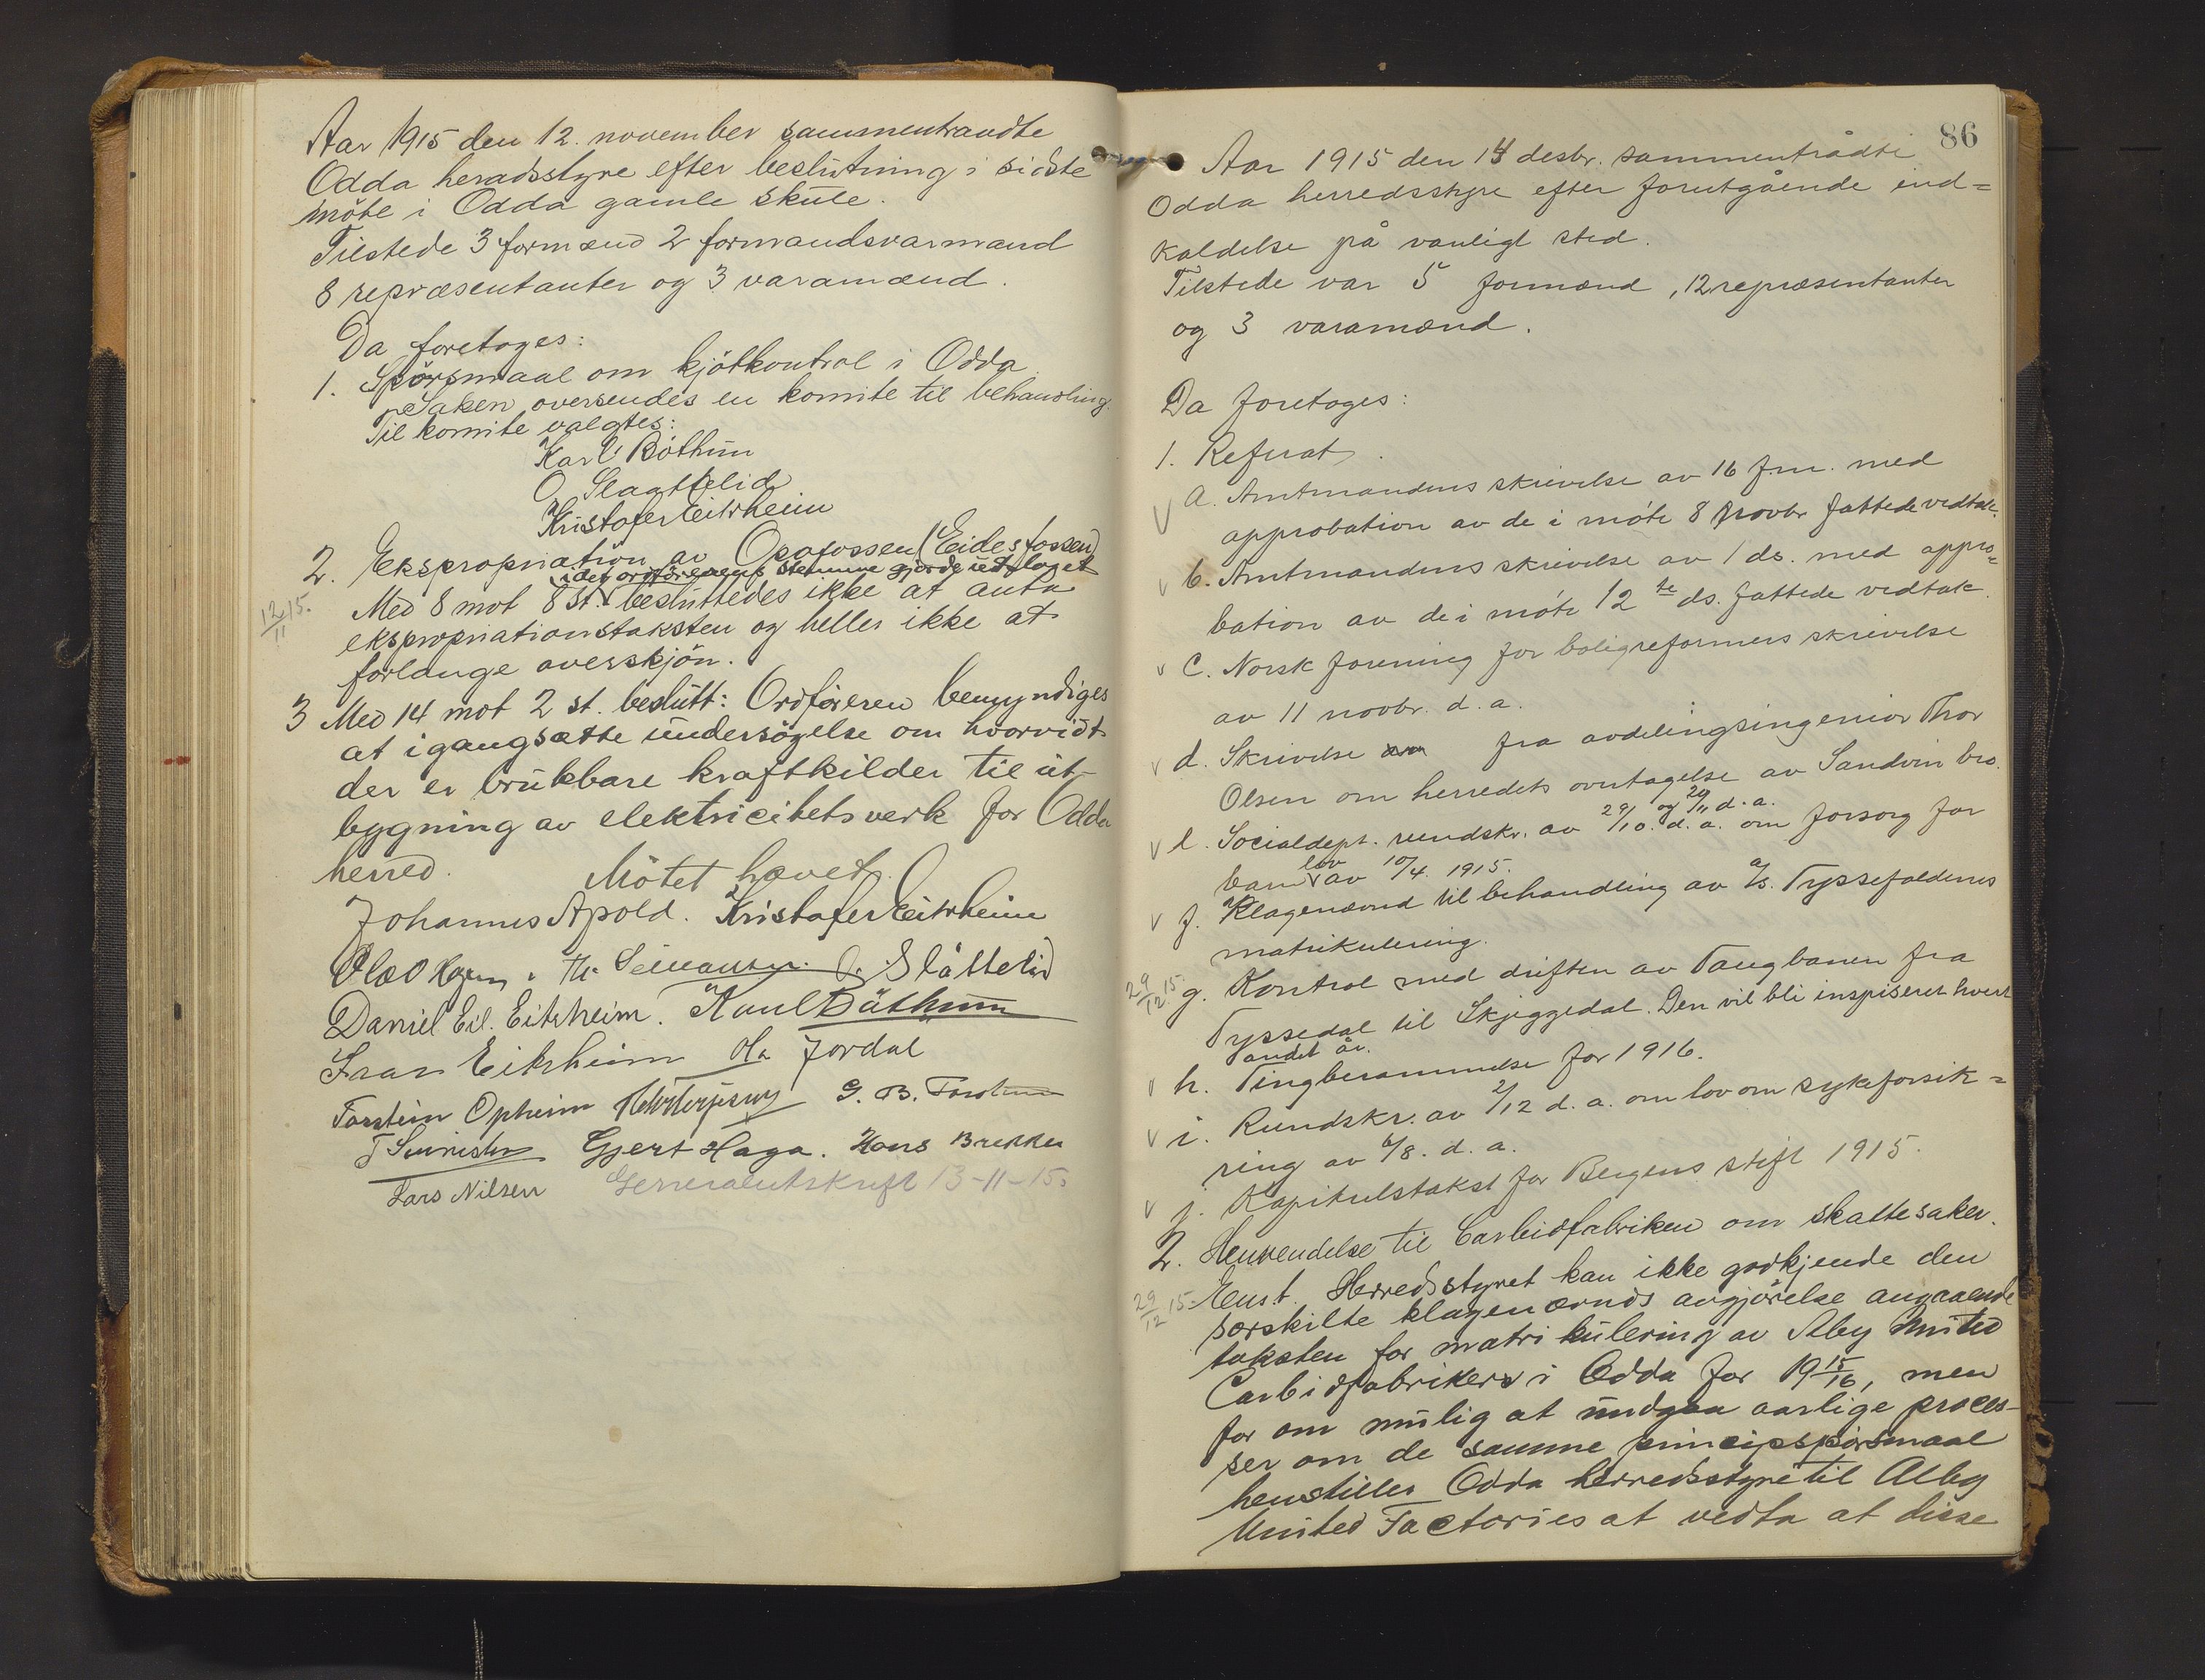 Aar 1915 den 12. november sammentraadte
Odda heradsstyre efter beslutning i sidste
möte i Odda gamle skule.
Tilstede 3 formænd 2 formandsvarmænd
8 repræsentanter og 3 varamænd.
Da foretoges:
1. Spörsmaal om kjötkontrol i Odda.
Saken oversendes en komite til behandling.
Til komite valgtes:
Karl Bóthun
O. Slaattelid
Kristofer Eitrheim
2. Ekspropriation av Opofossen (Eidesfossen)
idet ordförerens stemme gjorde utslaget
12/11 15.
Med 8 mot 8 st. besluttedes ikke at anta
ekspropriationstaksten og heller ikke at
forlange overskjön.
3 Med 14 mot 2 st. beslutt: Ordföreren bemyndiges
at igangsætte undersögelse om hvorvidt
der er brukbare kraftkilder til ut-
bygning av elektricitetsverk for Odda
herred. Mötet hævet.
Johannes Apold. Kristofer Eitrheim
O. Slåttelid
Daniel Eil. Eitrheim. Karl Bäthun
Eitrheim Ol. Jordal
Torstein Opheim G. B.
Gjert Haga. Hans Brekke
Lars Nilsen Generalutskrift 13-11-15.
86
Aar 1915 den 14 desbr. sammentrådte
Odda herredsstyre efter forutgående ind=
kaldelse på vanligt sted.
Tilstede var 5 formænd, 12 repræsentanter
og 3 varamænd.
Da foretoges:
1. Referat.
a. Amtmandens skrivelse av 16 f.m. med
approbation av de i móte 8 novbr fattede vedtak.
b. Amtmandens skrivelse av 1 ds. med appro=
bation av de i móte 12 te ds. fattede vedtak.
c. Norsk forening for boligreformers skrivelse
av 11 novbr. d. a.
d. Skrivelse fra avdelingsingeniör Thor
Olsen om herredets overtagelse av Sandvin bro.
og 29/11 d. a.
e. Socialdept. rundskr. av 29/10. d. a. om forsorg for
barn lov av 10/4. 1915.
f. Klagenævnd til behandling av A/S. Tyssefaldenes
matrikulering.
29/12 15. g. Kontrol med driften av Taugbanen fra
Tyssedal til Skjeggedal. Den vil bli inspiseret hvert
andet år.
h. Tingberammelse for 1916.
i. Rundskr. av 2/12 d. a. om lov om sykeforsik=
ring av 6/8. d. a.
j. Kapitulstakst for Bergens stift 1915.
2. Henvendelse til Carbidfabriken om skattesaker.
29/12 15. Enst. Herredsstyret kan ikke godkjende den
særskilte klagenævnds avgjörelse angaaende
taksten for matrikulering av Alby United
Carbidfabriker i Odda for 19 15/16, men
for om mulig at undgaa aarlige proces-
ser om de samme principspörsmaal
henstiller Odda herredsstyre til Alby
United Factories at vedta at disse